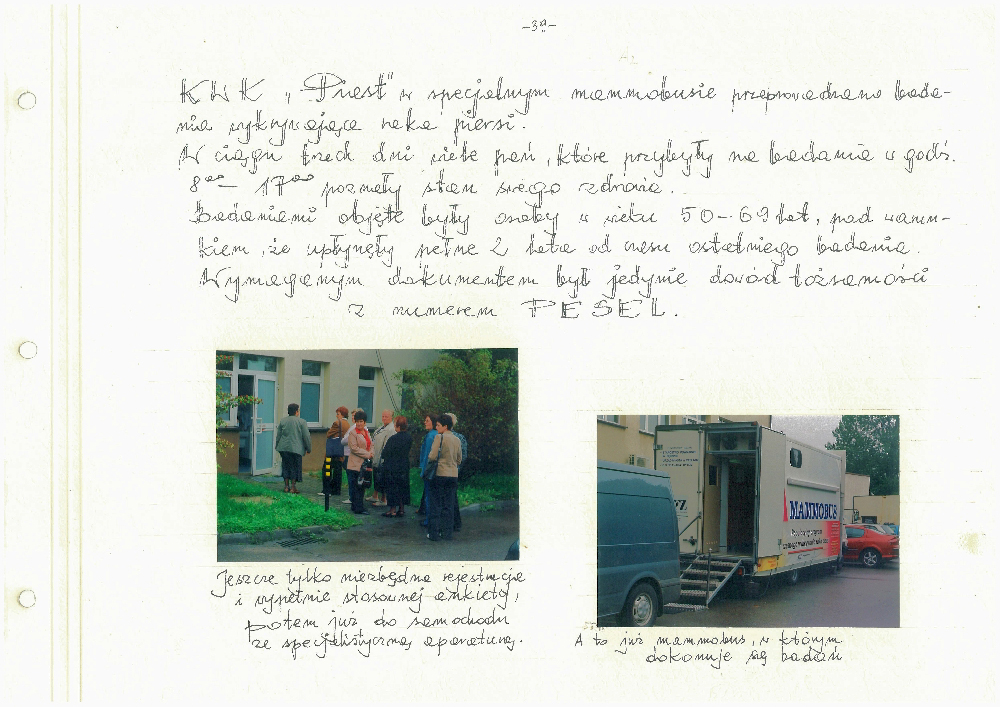 -39-
KWK "Piast" w specjalnym mammobusie przeprowadzano bada-
nia wykrywające raka piersi.
W ciągu trzech dni wiele pań, które przybyły na badania w godz.
8⁰⁰ - 17⁰⁰ poznały stan swego zdrowia.
Badaniami objęte były osoby w wieku 50-69 lat, pod warun-
kiem, że upłynęły pełne 2 lata od czasu ostatniego badania.
Wymaganym dokumentem był jedynie dowód tożsamości
z numerem PESEL.
Jeszcze tylko niezbędna rejestracja
i wypełnie stosownej ankiety,
potem już do samochodu
ze specjalistyczną aparaturą.
MAMMOBUS
A to już mammobus, w którym
dokonuje się badań